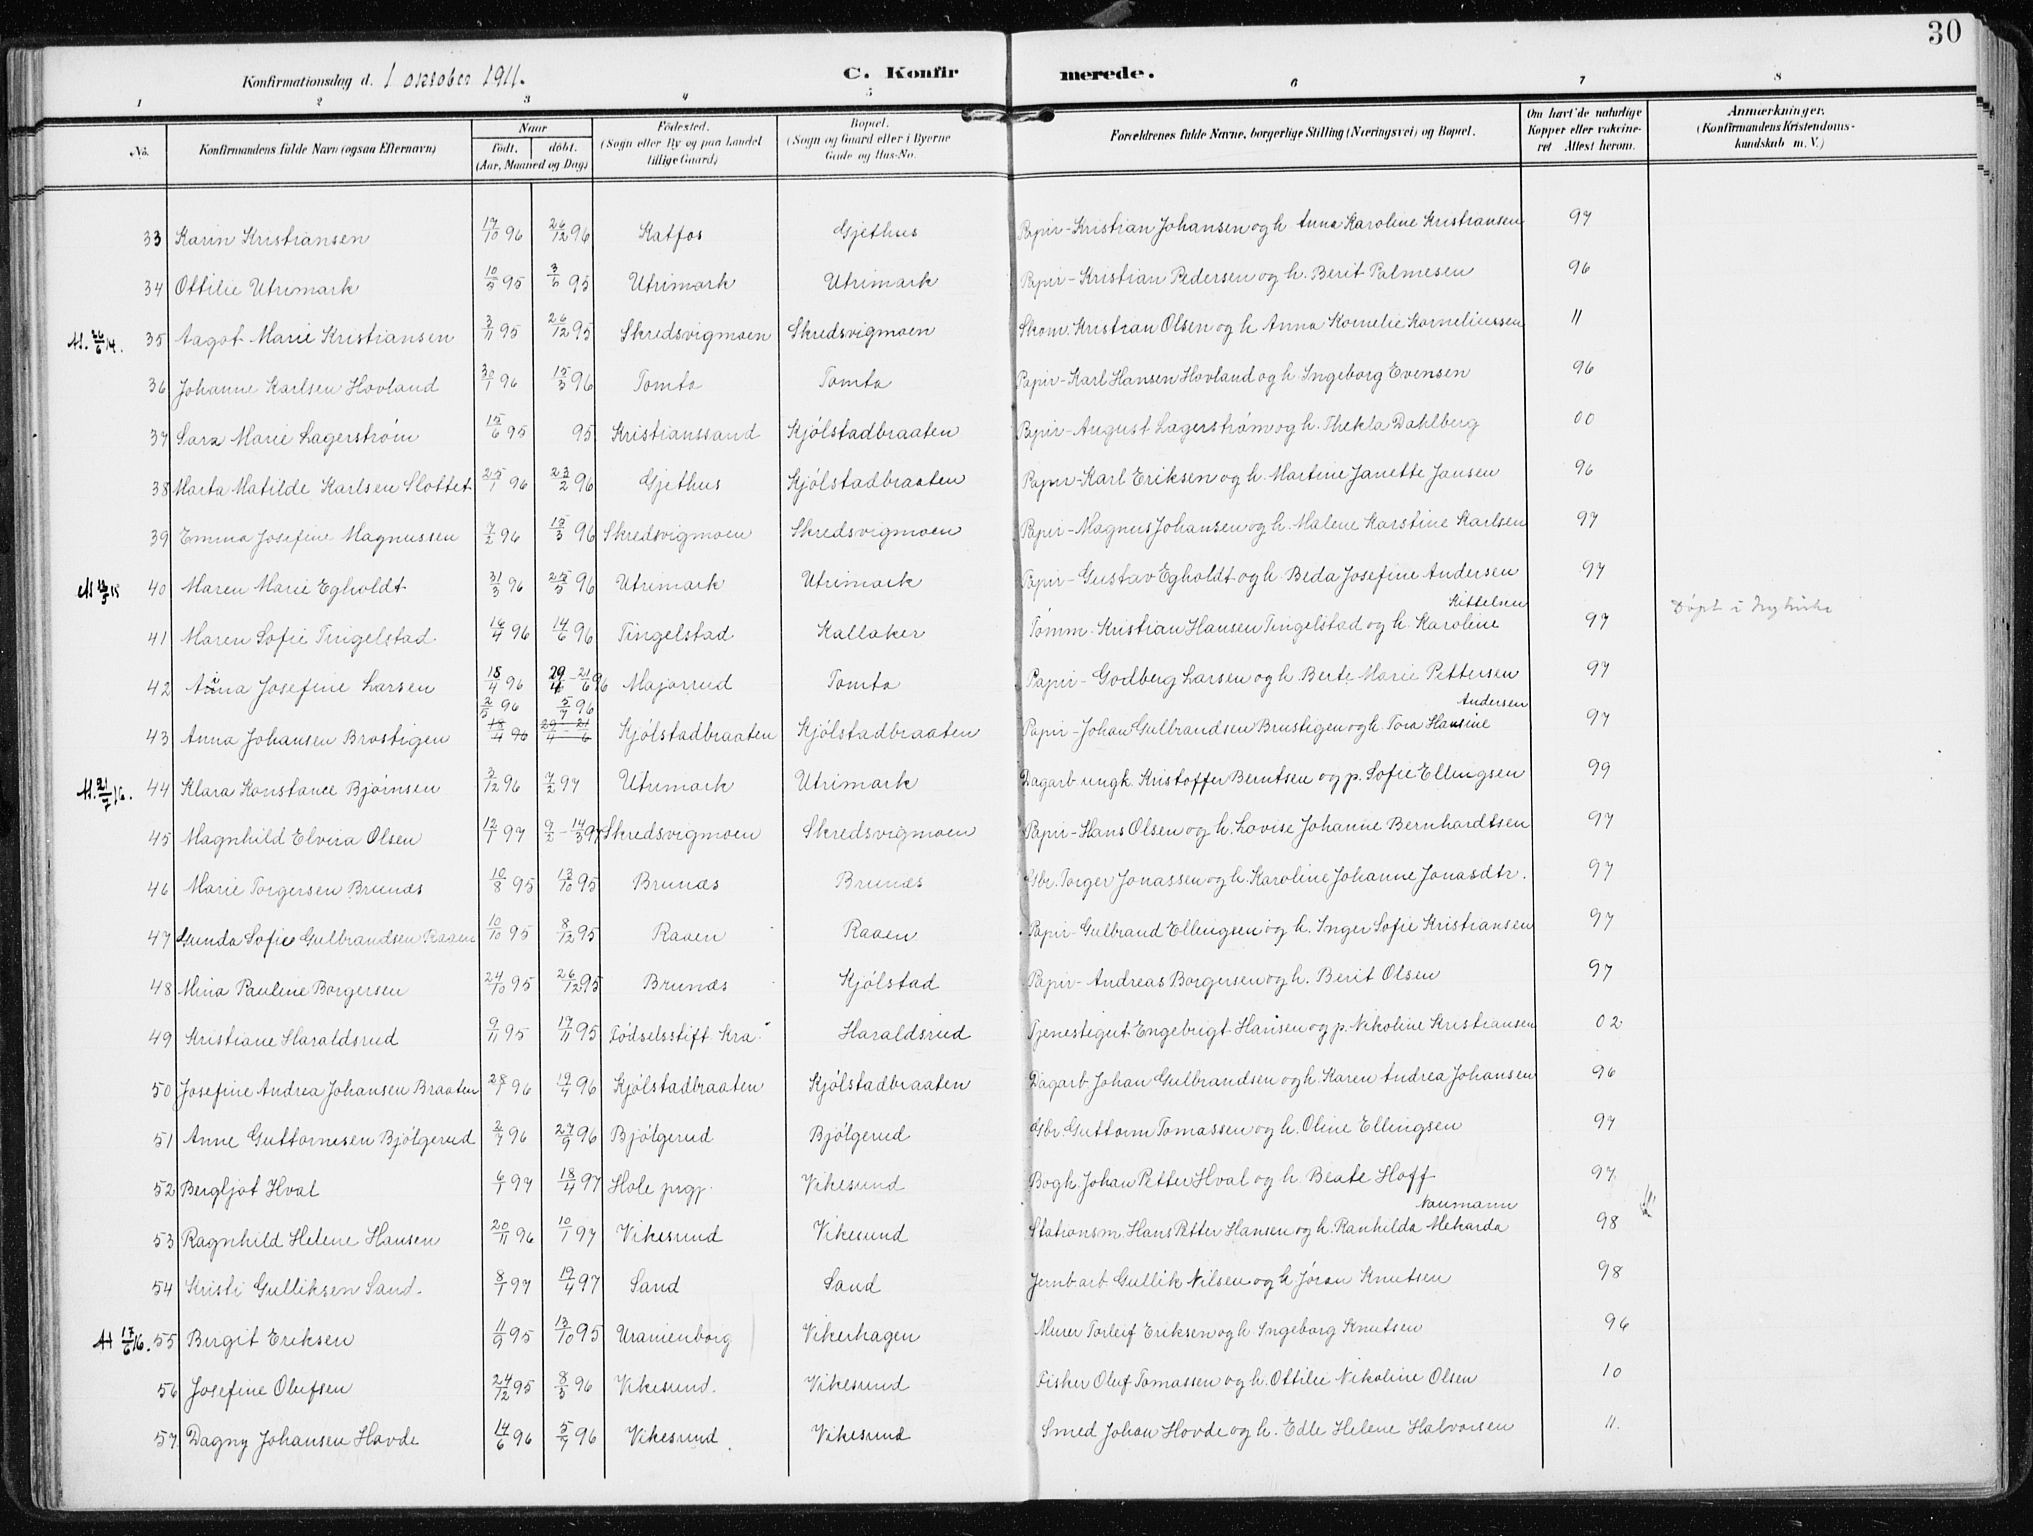 30
Konfirmationsdag d. 1 oktober 1911.
C. Konfirmerede.
1 2 3 4 5 6 7 8
No. Konfirmandens fulde Navn (ogsaa Efternavn) Naar født. døbt. (Aar, Maaned og Dag) Fødested. (Sogn eller By og paa Landet tillige Gaard) Bopæl. (Sogn og Gaard eller i Byerne Gade og Hus-No. Forældrenes fulde Navne, borgerlige Stilling (Næringsvei) og Bopæl. Om havt de naturlige Kopper eller vakcineret Attest herom. Anmærkninger. (Konfirmandens Kristendomskundskab m. V.)
33 Karin Kristiansen 17/10 96 26/12 96 Katfos Gjethus Papir-Kristian Johansen og h. Anna Karoline Kristiansen 97
34 Ottilie Utrimark 10/5 95 3/6 95 Utrimark Utrimark Papir-Kristian Pedersen og h. Berit Palmesen 96
M. 26/6 14. 35 Aagot Marie Kristiansen 3/11 95 26/12 95 Skredsvigmoen Skredsvigmoen Skom. Kristian Olsen og h. Anna Kornelie Korneliussen 11
36 Johanne Karlsen Hovland 30/1 96 15/3 96 Tomta Tomta Papir-Karl Hansen Hovland og h. Ingeborg Evensen 96
37 Sara Marie Lagerstrøm 15/6 95 95 Kristianssand Kjølstadbraaten Papir-August Lagerstrøm og h. Thekla Dahlberg 00
38 Marta Matilde Karlsen Slottet 25/1 96 23/2 96 Gjethus Kjølstadbraaten Papir-Karl Eriksen og h. Martine Janette Jansen 96
39 Emma Josefine Magnussen 7/2 96 15/3 96 Skredsvigmoen Skredsvigmoen Papir-Magnus Johansen og h. Malene Karstine Karlsen 97
M 13/5 15 40 Maren Marie Egholdt 31/3 96 25/5 96 Utrimark Utrimark Papir-Gustav Egholdt og h. Beda Josefine Andersen 97
Kittelsen
41 Maren Sofie Tingelstad 16/4 96 14/6 96 Tingelstad Kallaker Tømm. Kristian Hansen Tingelstad og h. Karoline 97 Døpt i
42 Anna Josefine Larsen 18/4 96 29/4 - 21/6 96 Majorrud Tomta Papir-Godberg Larsen og h. Berte Marie Pettersen 97
2/5 96 5/7 96 Andersen
43 Anna Johansen Brostigen 18/4 96 29/4 - 21/6 Kjølstadbraaten Kjølstadbraaten Papir-Johan Gulbrandsen Brustigen og h. Tora Hansine 97
M. 21/7 16. 44 Klara Konstance Bjørnsen 3/12 96 7/2 97 Utrimark Utrimark Dagarb. ungk. Kristoffer Berntsen og p. Sofie Ellingsen 99
45 Magnhild Elvira Olsen 12/1 97 9/2 - 14/3 97 Skredsvigmoen Skredsvigmoen Papir-Hans Olsen og h. Lovise Johanne Bernhardtsen 97
46 Marie Torgersen Brunæs 10/8 95 13/10 95 Brunæs Brunæs Gbr. Torger Jonassen og h. Karoline Johanne Jonasdtr. 97
47 Gunda Sofie Gulbrandsen Raaen 10/10 95 8/12 95 Raaen Raaen Papir-Gulbrand Ellingsen og h. Inger Sofie Kristiansen 97
48 Mina Pauline Borgersen 24/10 95 26/12 95 Brunæs Kjølstad Papir-Andreas Borgersen og h. Berit Olsen 97
49 Kristiane Haraldsrud 9/11 95 17/11 95 Fødselsstift. Kra. Haraldsrud Tjenestegut Engebrigt Hansen og p. Nikoline Kristiansen 02
50 Josefine Andrea Johansen Braaten 28/1 96 19/4 96 Kjølstadbraaten Kjølstadbraaten Dagarb. Johan Gulbrandsen og h. Karen Andrea Johansen 96
51 Anne Guttormsen Bjølgerud 2/7 96 27/9 96 Bjølgerud Bjølgerud Gbr. Guttorm Tomassen og h. Oline Ellingsen 97
52 Bergljot Hval 6/1 97 18/4 97 Hole prgj. Vikesund Bogh. Johan Petter Hval og h. Beate Hoff 97
Naumann
53 Ragnhild Helene Hansen 20/11 96 10/1 97 Vikesund Vikesund Stationsm. Hans Petter Hansen og h. Ranhilda Mekarda 98
54 Kristi Gulliksen Sand. 8/1 97 19/4 97 Sand Sand Jernb.arb. Gullik Nilsen og h. Jöran Knutsen 98
M 17/6 16. 55 Birgit Eriksen 11/9 95 13/10 95 Uranienborg Vikerhagen Murer Torleif Eriksen og h. Ingeborg Knutsen 96
56 Josefine Olufsen 24/12 95 8/3 96 Vikesund. Vikesund Fisker Oluf Tomassen og h. Ottilie Nikoline Olsen 10
57 Dagny Johansen Hovde 14/6 96 5/7 96 Vikesund Vikesund Smed Johan Hovde og h. Edle Helene Halvorsen 11.